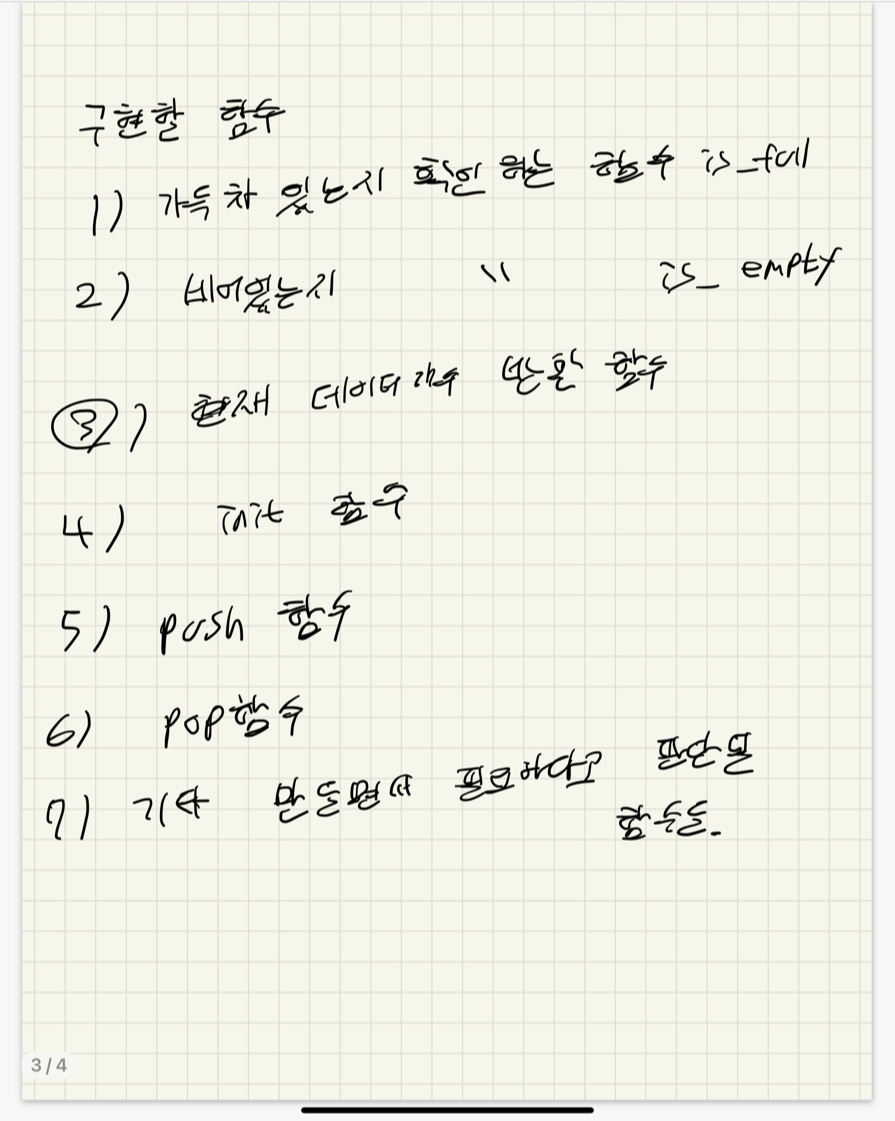 구현할 함수
1) 가득 차 있는지 확인 하는 함수 is_full
2) 비어있는지 " is_empty
3) 현재 데이터 개수 반환 함수
4) init 함수
5) push 함수
6) pop함수
7) 기타 만들면서 필요하다고 판단될
함수들.
3/4